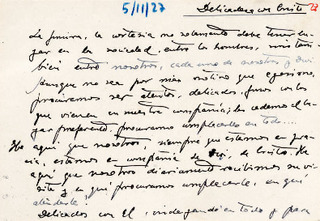 5/11/27 Delicados con Cristo
La finura, la cortesía no solamente debe tener lu-
gar en la sociedad, entre los hombres, sino tam-
bién entre nosotros, cada uno de nosotros y
Aunque no sea por más motivo que egoísmo,
procuramos ser atentos, delicados, finos con los
que vienen en nuestra compañía; les cedemos el lu-
gar preferente, procuramos complacerle en todo...
He aquí que nosotros, siempre que estamos en gra-
cia, estamos en compañía de de Cristo. He
aquí que nosotros diariamente recibimos su vi-
sita y en qué procuramos complacerle, en qué
atenderle?
Delicados con El, en todo y para